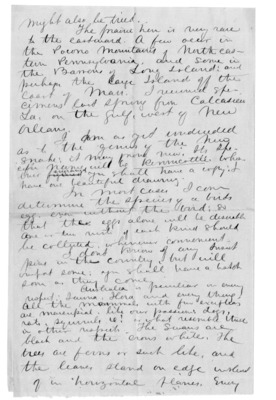 might also be tried.
The prairie hen is very rare
to the eastward. A few occur in
the Pocono Mountains of Northeas-
tern Pennsylvania, and some in
the Barrens of Long Island; and
perhaps the large Island off the
Coast of Mass. I received spe-
cimens last spring from Calcasieu
La. on the Gulf, west of New
Orleans.
I am as yet undecided
as to the genus of the
Snake; it may prove new. Its spe-
cific name will be
you shall have a copy. I
have one beautiful drawing.
In most cases I can
determine the species of a bird's
egg, even without the bird; so
that the eggs alone will be desirable
ten or ten of each kind should
be collected, when convenient.
in this country, but will
import some; you shall have a batch
soon as they come.
Australia is peculiar in every
respect, Fauna, Flora and every thing.
All the mammals with few exceptions
are marsupial, like our possum; dogs,
rats, squirrels
in other respects. The Swans are
black and the crows white. The
trees are ferns or such like, and
the leaves stand on edge instead
of in horizontal planes. Every